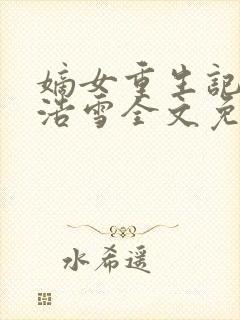 嫡女重生記
浩雪全文免
水希遥